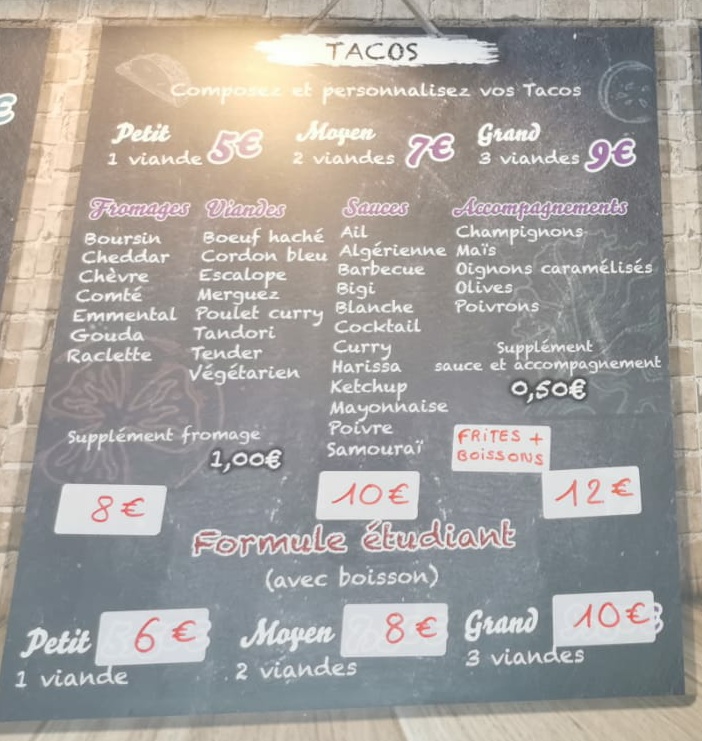 TACOS
Composez et personnalisez vos Tacos
Petit 5€ Moyen 7€ Grand 9€
1 viande 2 viandes 3 viandes
Fromages
Boursin
Cheddar
Chèvre
Comté
Emmental
Gouda
Raclette
Supplément fromage
1,00€
Viandes
Boeuf haché
Cordon bleu
Escalope
Merguez
Poulet curry
Tandori
Tender
Végétarien
Sauces
Ail
Algérienne
Barbecue
Bigi
Blanche
Cocktail
Curry
Harissa
Ketchup
Mayonnaise
Poivre
Samouraï
Accompagnements
Champignons
Maïs
Oignons caramélisés
Olives
Poivrons
Supplément
sauce et accompagnement
0,50€
FRITES +
BOISSONS
8€ 10€ 12€
Formule étudiant
(avec boisson)
Petit 6€ Moyen 8€ Grand 10€
1 viande 2 viandes 3 viandes